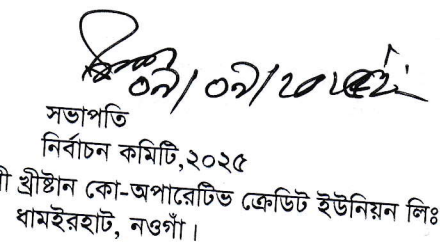 ০৯/০৯/২০২৫ইং
সভাপতি
নির্বাচন কমিটি,২০২৫
খ্রীষ্টান কো-অপারেটিভ ক্রেডিট ইউনিয়ন লিঃ
ধামইরহাট, নওগাঁ।